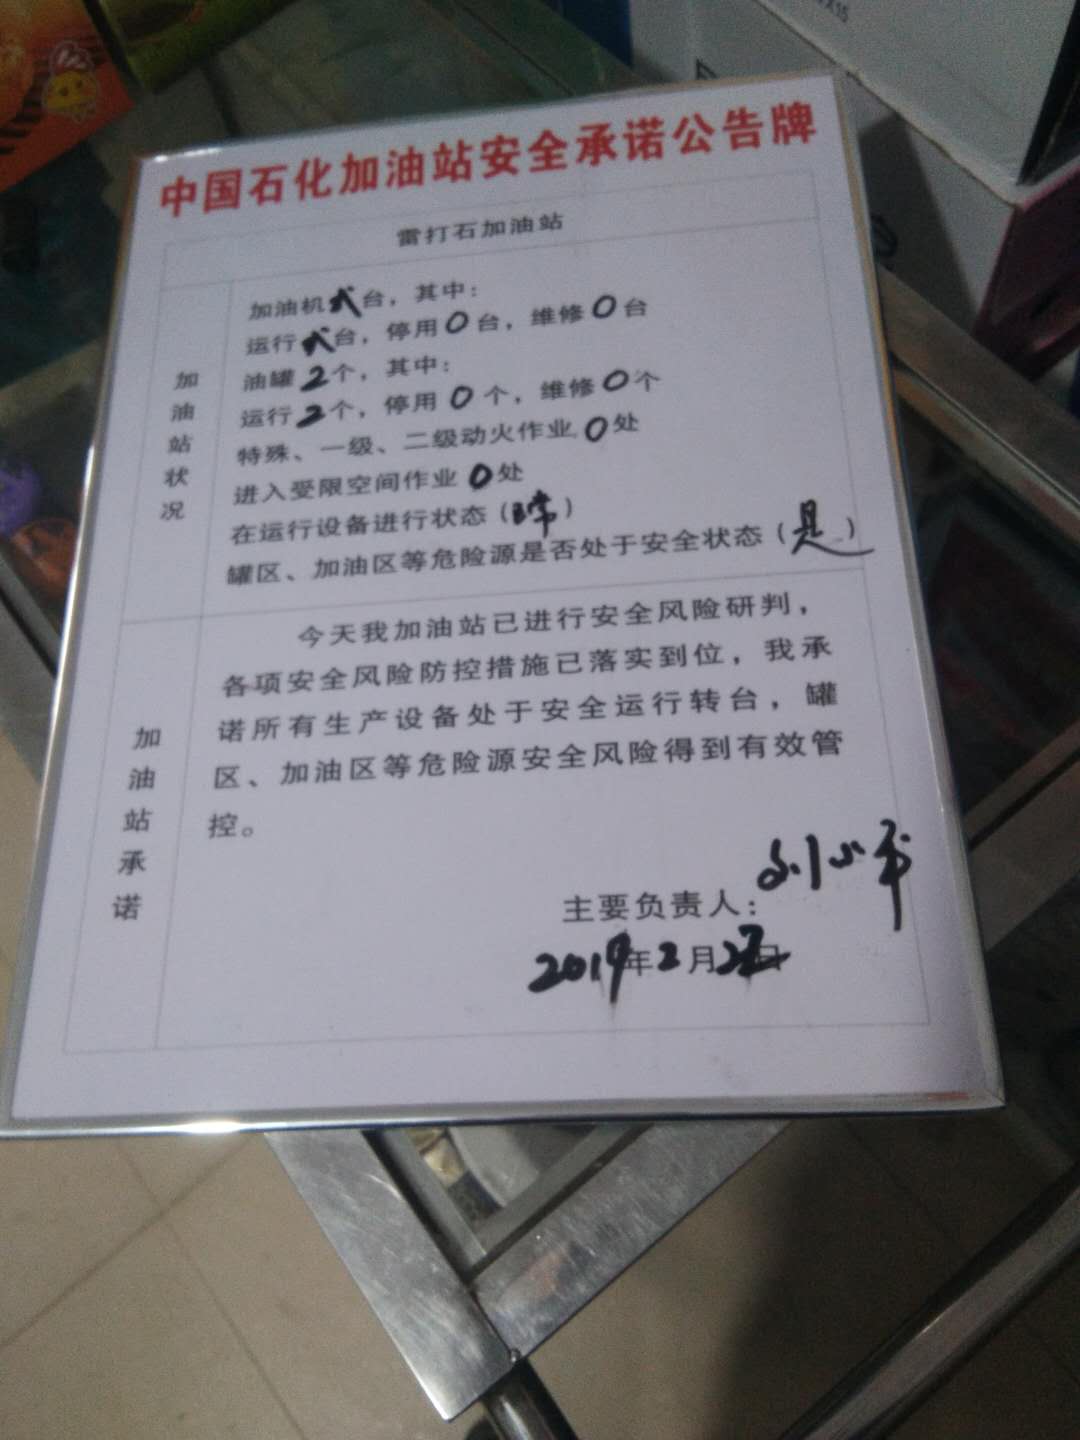 中国石化加油站安全承诺公告牌
雷打石加油站
加油站状况
加油机弍台，其中：
运行弍台，停用0台，维修0台
油罐2个，其中：
运行2个，停用0个，维修0个
特殊、一级、二级动火作业0处
进入受限空间作业0处
在运行设备进行状态（正常）
罐区、加油区等危险源是否处于安全状态（是）
加油站承诺
今天我加油站已进行安全风险研判，
各项安全风险防控措施已落实到位，我承
诺所有生产设备处于安全运行转台，罐
区、加油区等危险源安全风险得到有效管
控。
主要负责人：刘小平
2019年2月 日
X15